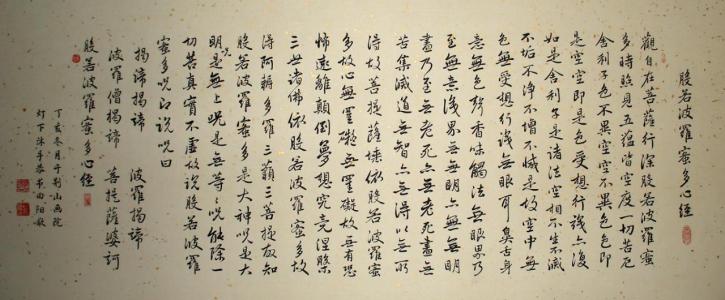 般若波羅蜜多心經
觀自在菩薩行深般若波羅蜜
多時照見五蘊皆空度一切苦厄
舍利子色不異空空不異色色即
是空空即是色受想行識亦復
如是舍利子是諸法空相不生不滅
不垢不淨不增不減是故空中無
色無受想行識無眼耳鼻舌身
意無色聲香味觸法無眼界乃
至無意識界無無明亦無無明
盡乃至無老死亦無老死盡無
苦集滅道無智亦無得以無所
得故菩提薩埵依般若波羅蜜
多故心無罣礙無罣礙故無有恐
怖遠離顛倒夢想究竟涅槃
三世諸佛依般若波羅蜜多故
得阿耨多羅三藐三菩提故知
般若波羅蜜多是大神咒是大
明咒是無上咒是無等等咒能除一
切苦真實不虛故說般若波羅
蜜多咒即說咒曰
揭諦揭諦 波羅揭諦
波羅僧揭諦 菩提薩婆訶
般若波羅蜜多心經
丁亥冬月于荆山画院
灯下沐手恭书田阳敏